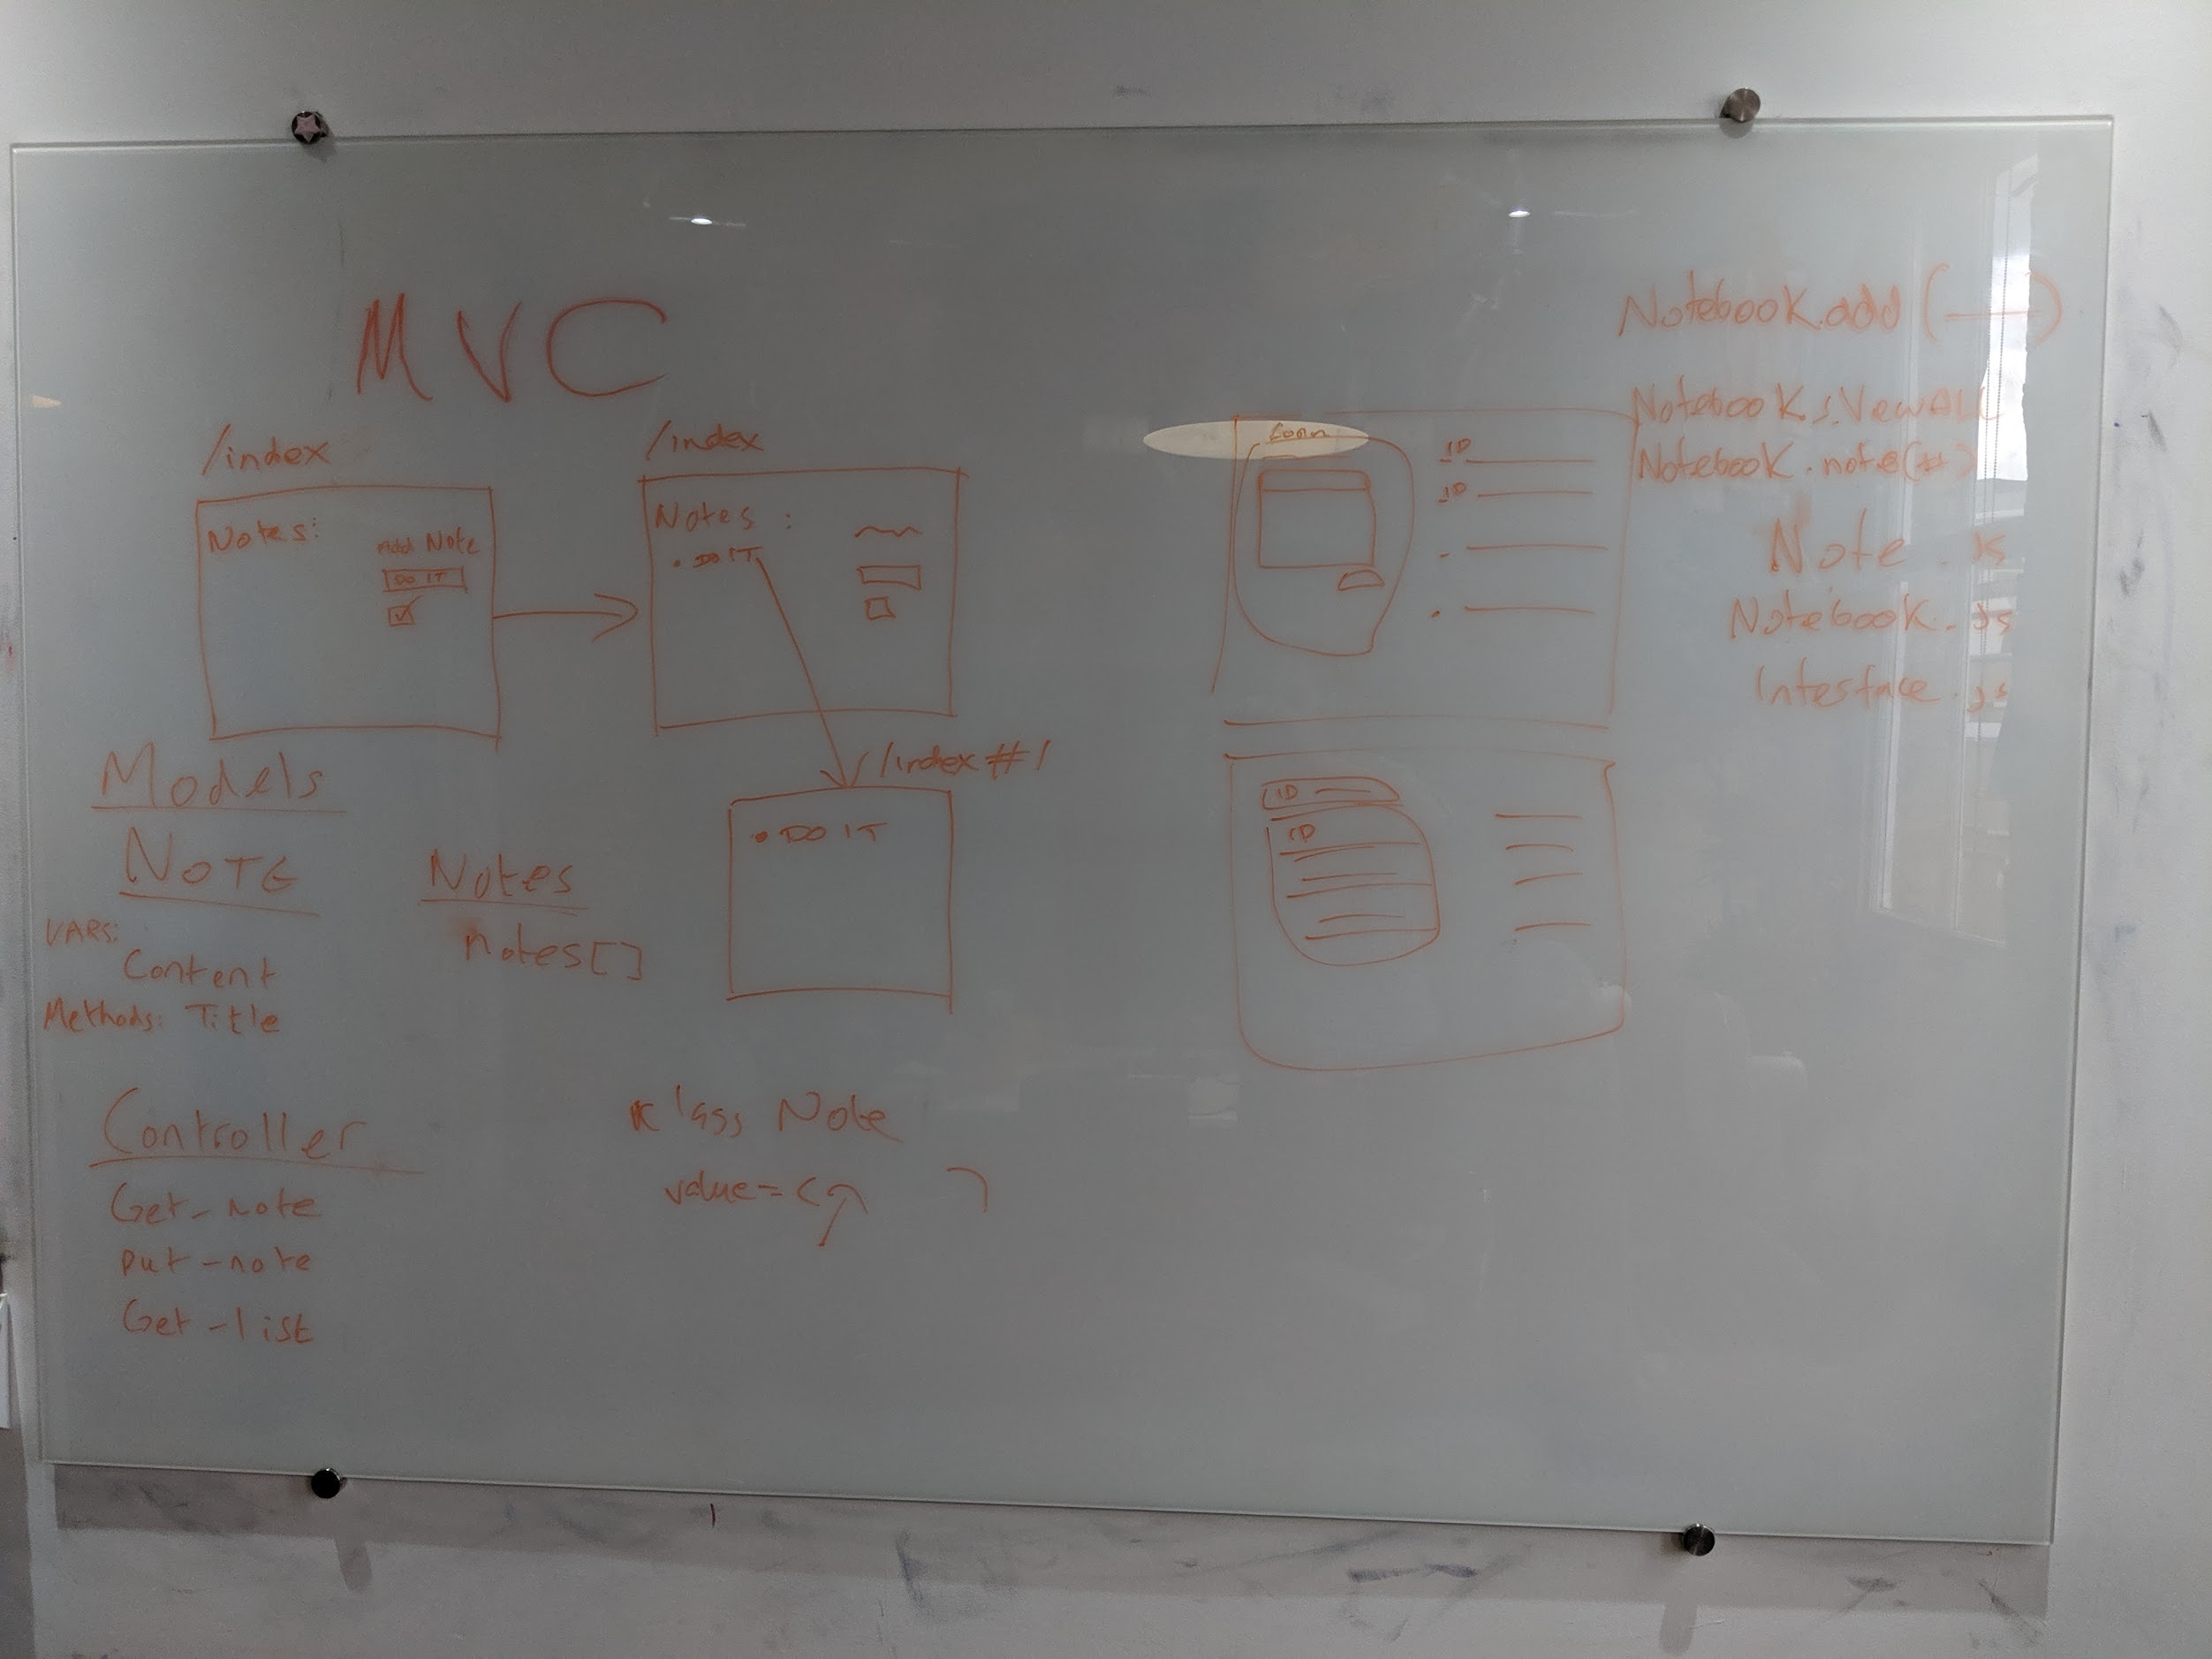 MVC
/index
Notes:
Add Note
DO IT
/index
Notes :
• DO IT
/index#1
• DO IT
Models
NOTE
VARS:
Content
Methods: Title
Notes
notes[]
Controller
Get-note
put-note
Get-list
Note
value=
Form
ID
ID
ID
ID
Notebook.add(
Notebook.note(#)
Note.js
Notebook.js
Interface.js